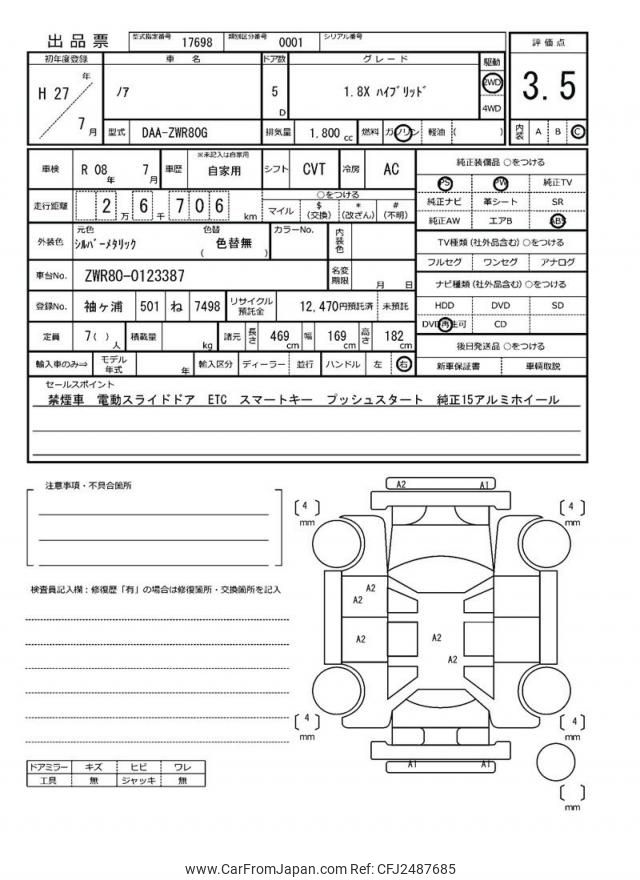 出品票 型式指定番号 17698 類別区分番号 0001 シリアル番号
初年度登録 車名 ドア数 グレード 駆動 評価点
H 27 年 7 月 ﾉｱ 5 D 1.8X ﾊｲﾌﾞﾘｯﾄﾞ 2WD 4WD 3.5
型式 DAA-ZWR80G 排気量 1.800 cc 燃料 ガソリン 軽油 ( ) 内装 A B C
車検 R 08 年 7 月 車歴 ※未記入は自家用 自家用 シフト CVT 冷房 AC
純正装備品 ○をつける
PS PW 純正TV
走行距離 2 万 6 千 7 0 6 km
○をつける
マイル $ (交換) * (改ざん) # (不明)
純正ナビ 革シート SR
純正AW エアB ABS
外装色 元色 ｼﾙﾊﾞｰﾒﾀﾘｯｸ 色替 ( 色替無 ) カラーNo. 内装色
TV種類 (社外品含む) ○をつける
フルセグ ワンセグ アナログ
車台No. ZWR80-0123387 名変期限 月 日
ナビ種類 (社外品含む) ○をつける
登録No. 袖ヶ浦 501 ね 7498 リサイクル預託金 12,470円預託済 未預託
HDD DVD SD
DVD再生可 CD
定員 7( ) 人 積載量 kg 諸元 長さ 469 cm 幅 169 cm 高さ 182 cm
後日発送品 ○をつける
輸入車のみ⇒ モデル年式 年 輸入区分 ディーラー 並行 ハンドル 左 右
新車保証書 車輌取説
セールスポイント
禁煙車 電動スライドドア ETC スマートキー プッシュスタート 純正15アルミホイール
注意事項・不具合箇所
検査員記入欄：修復歴「有」の場合は修復箇所・交換箇所を記入
A2 A1
4 mm
4 mm
A2
A2
A2 A2
A2
4 mm
4 mm
A1 A1
mm
ドアミラー キズ ヒビ ワレ
工具 無 ジャッキ 無
www.CarFromJapan.com Ref: CFJ2487685